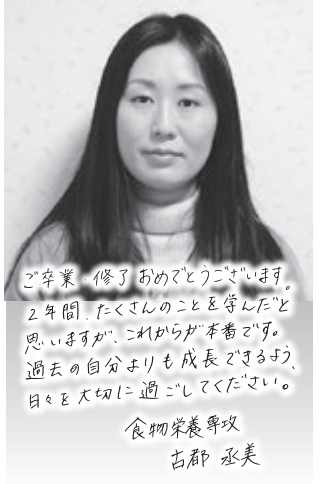 ご卒業・修了おめでとうございます。
2年間、たくさんのことを学んだと
思いますが、これからが本番です。
過去の自分よりも成長できるよう、
日々を大切に過ごしてください。
食物栄養専攻
古都 丞美